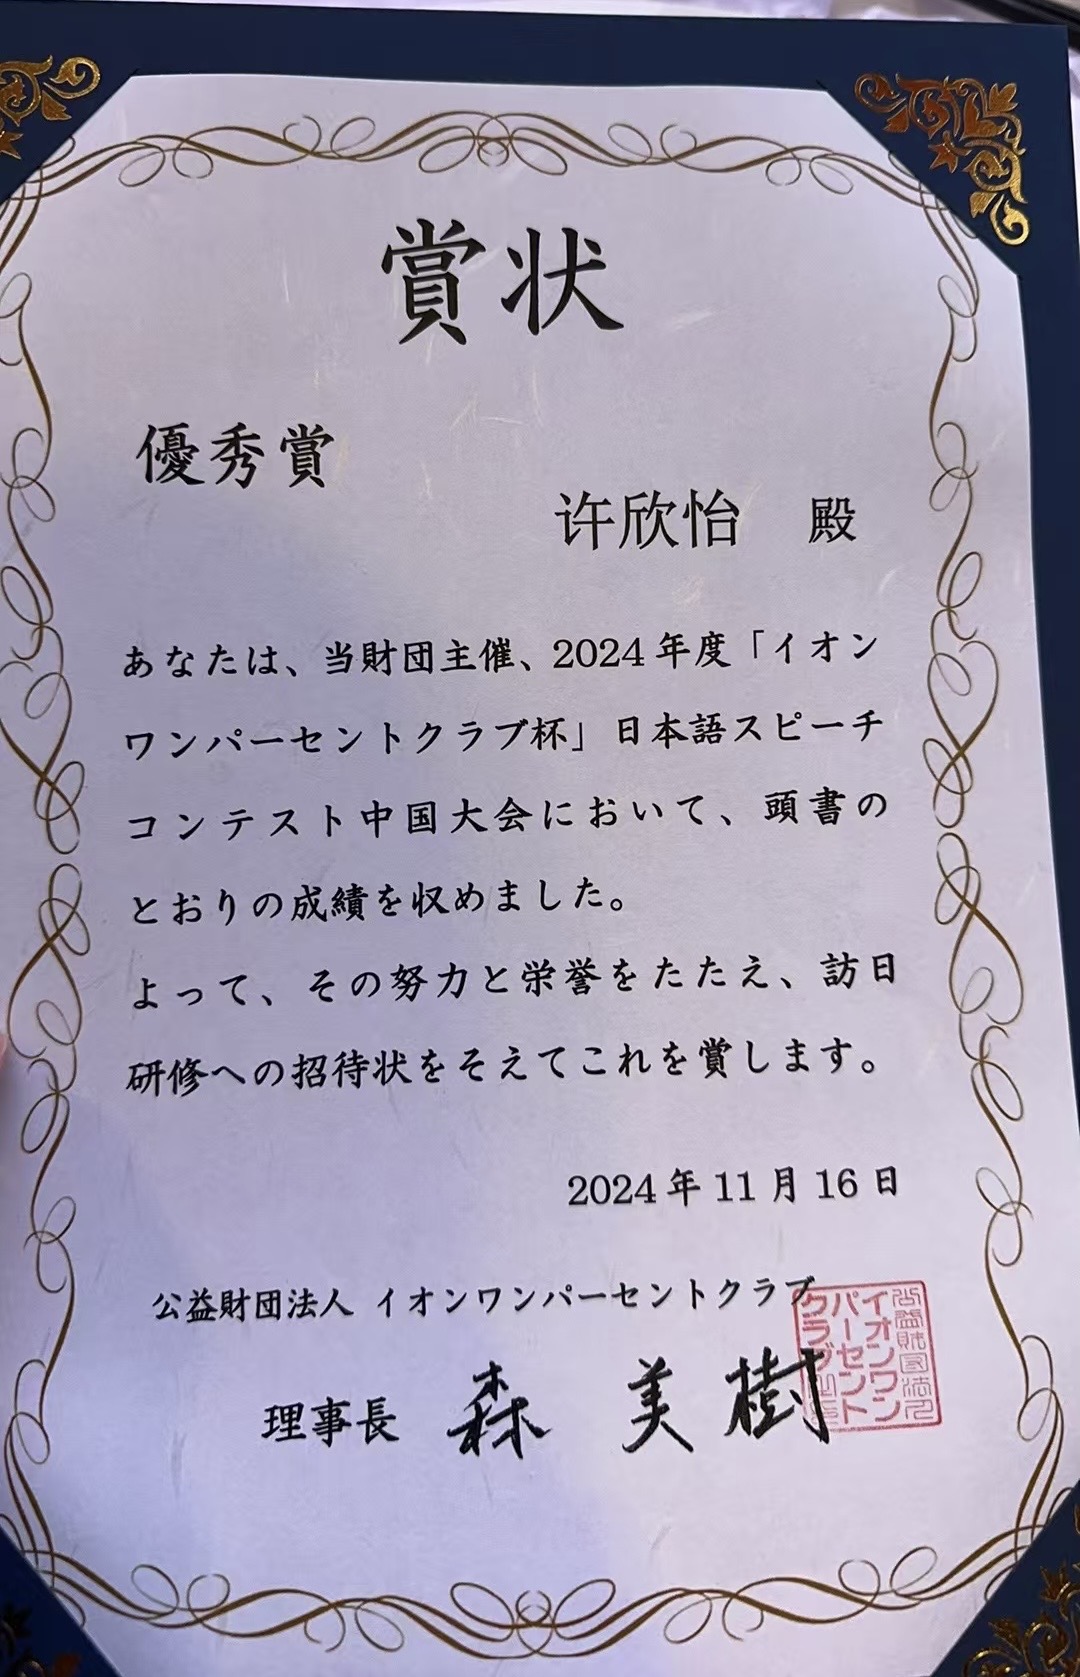 賞状
優秀賞
许欣怡 殿
あなたは、当財団主催、2024年度「イオン
ワンパーセントクラブ杯」日本語スピーチ
コンテスト中国大会において、頭書の
とおりの成績を収めました。
よって、その努力と栄誉をたたえ、訪日
研修への招待状をそえてこれを賞します。
2024年11月16日
公益財団法人 イオンワンパーセントクラブ
理事長 森 美樹
公益財団法人
イオンワン
パーセント
クラブ